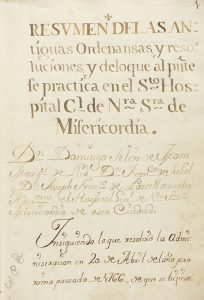 RESVMEN DE LAS AN-
tiguas Ordenansas, y reso-
luciones, y de lo que al pñte
se practica en el S.to Hos-
pital G.l de N.ra S.ra de
Misericordia.
D.n Domingo Felix de Mora
de
y D.n Joseph Fran.co de
de el Hospital Gen.l de N.ra S.ra de
Misericordia de esta Ciudad.
Insiguiendo lo que resolvió la Admi-
nistracion en 20 de Abril de el año pro-
ximo passado de 1766, de que se hiziese